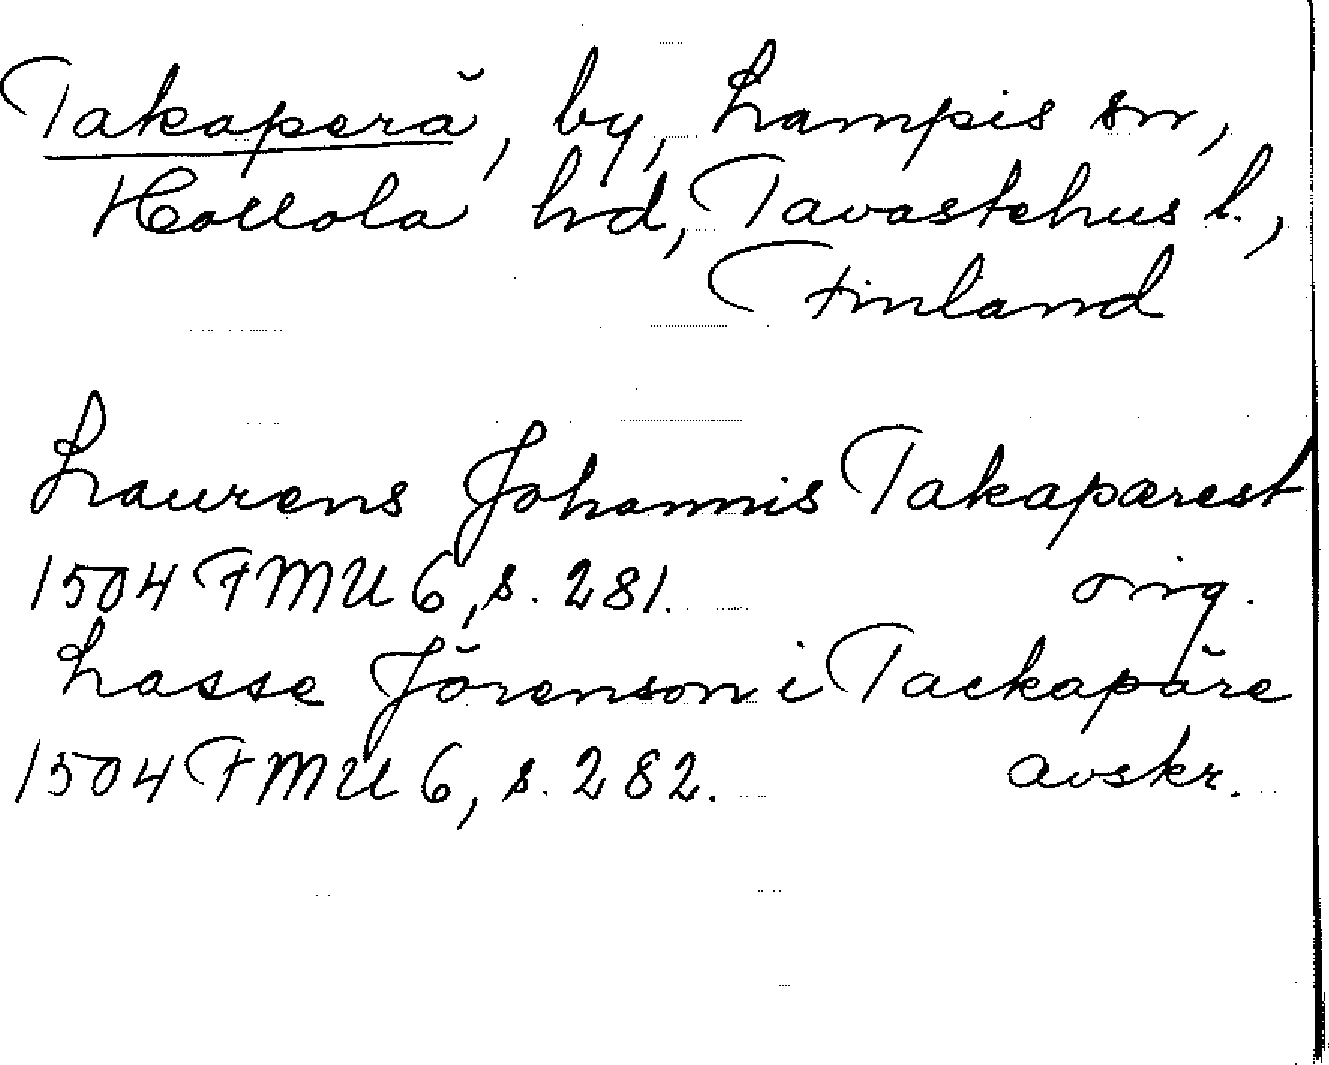 Takaperä, by, Lampis sn,
Hollola hd, Tavastehus l.,
Finland
Laurens Johannis Takapærest
1504 FMU 6, s. 281. orig.
Lasse Jörenson i Tackapäre
1504 FMU 6, s. 282. avskr.